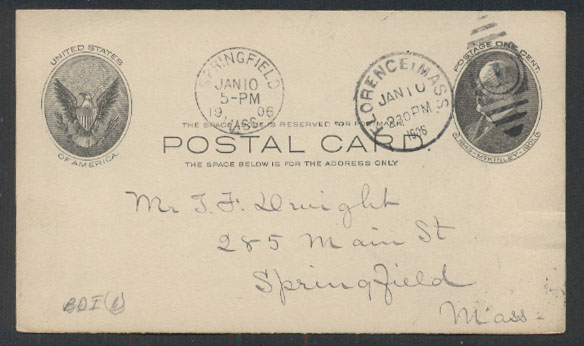 UNITED STATES
OF AMERICA.
SPRINGFIELD
JAN 10
5-PM
19 06
MASS.
FLORENCE, MASS.
JAN 10
230PM
1906
POSTAGE ONE CENT.
1843-McKINLEY-1901.
THE SPACE IS RESERVED FOR
POSTAL CARD.
THE SPACE BELOW IS FOR THE ADDRESS ONLY
Mr T. F. Dwight
285 Main St
Springfield
Mass-